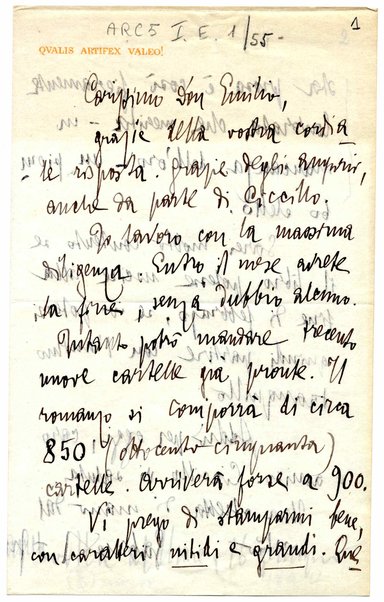 ARC5 I. E. 1/55-
1
QVALIS ARTIFEX VALEO!
Carissimo Don Emilio,
grazie della vostra cordia-
le risposta. Grazie degli augurii,
anche da parte di Ciccillo.
Io lavoro con la massima
diligenza. Entro il mese avrete
la fine, senza dubbio alcuno.
Intanto potrò mandare trecento
nuove cartelle già pronte. Il
romanzo si comporrà di circa
850 (ottocento cinquanta)
cartelle. Arriverà forse a 900.
Vi prego di stamparmi bene,
con caratteri nitidi e grandi. Que